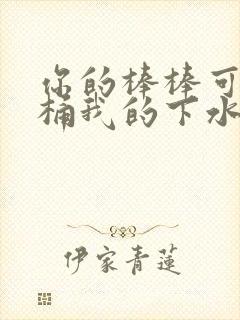 你的棒棒可
桶我的下水
伊家青莲